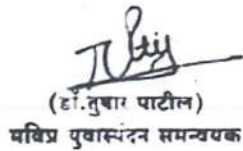 (डॉ.तुषार पाटील)
मविप्र युवास्पंदन समन्वयक